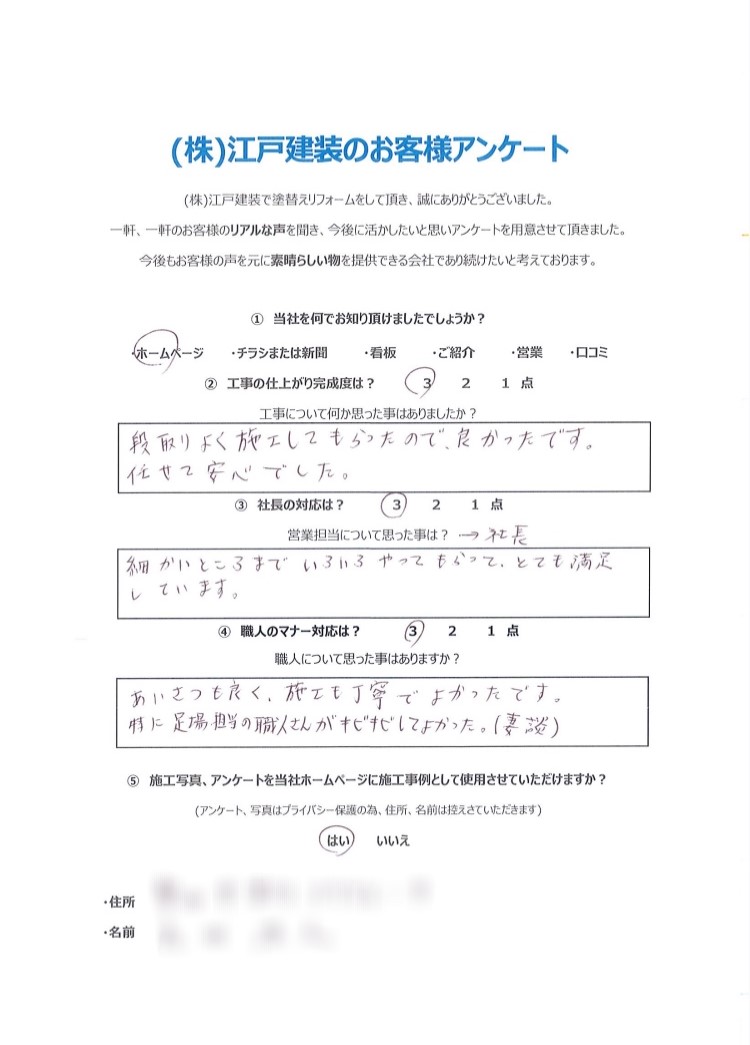 (株)江戸建装のお客様アンケート
(株)江戸建装で塗替えリフォームをして頂き、誠にありがとうございました。
一軒、一軒のお客様のリアルな声を聞き、今後に活かしたいと思いアンケートを用意させて頂きました。
今後もお客様の声を元に素晴らしい物を提供できる会社であり続けたいと考えております。
① 当社を何でお知り頂けましたでしょうか？
・ホームページ ・チラシまたは新聞 ・看板 ・ご紹介 ・営業 ・口コミ
② 工事の仕上がり完成度は？ 3 2 1 点
工事について何か思った事はありましたか？
段取りよく施工してもらったので、良かったです。
任せて安心でした。
③ 社長の対応は？ 3 2 1 点
営業担当について思った事は？ → 社長
細かいところまで いろいろ やって もらって、とても満足
しています。
④ 職人のマナー対応は？ 3 2 1 点
職人について思った事はありますか？
あいさつも良く、施工も丁寧で よかったです。
特に足場担当の職人さんがキビキビしてよかった。(妻談)
⑤ 施工写真、アンケートを当社ホームページに施工事例として使用させていただけますか？
(アンケート、写真はプライバシー保護の為、住所、名前は控えさていただきます)
はい いいえ
・住所
・名前